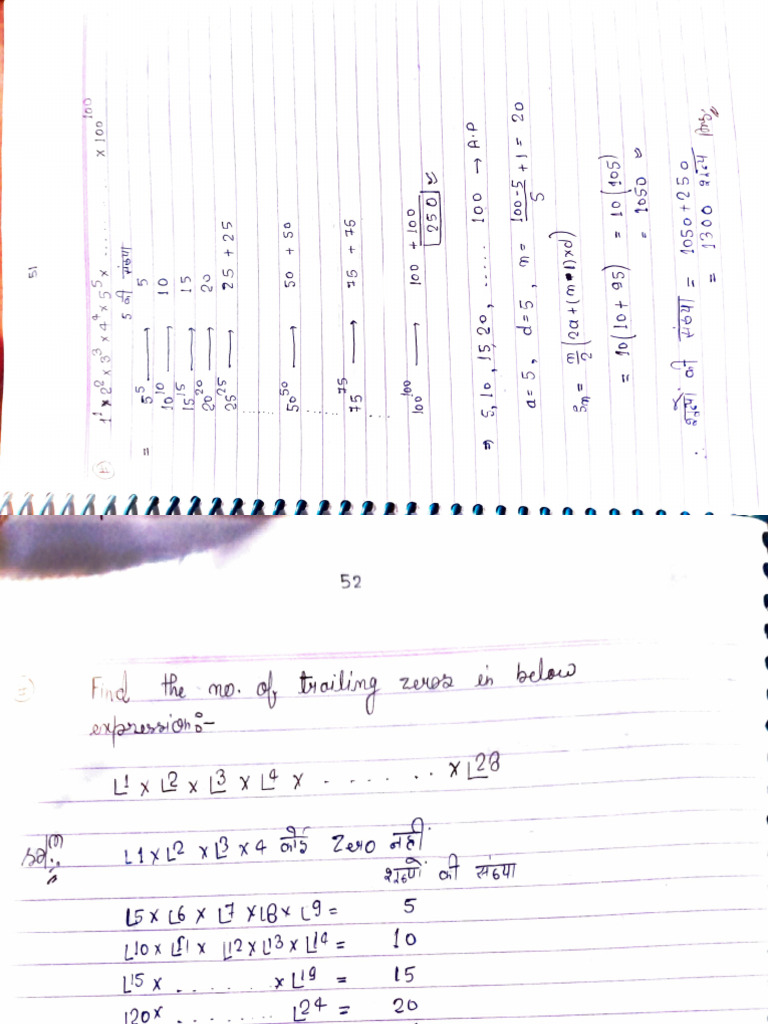 51
1¹ × 2² × 3³ × 4⁴ × 5⁵ × ........ × 100¹⁰⁰
5 की संख्या
= 5⁵ ⟶ 5
10¹⁰ ⟶ 10
15¹⁵ ⟶ 15
20²⁰ ⟶ 20
25²⁵ ⟶ 25 + 25
50⁵⁰ ⟶ 50 + 50
75⁷⁵ ⟶ 75 + 75
100¹⁰⁰ ⟶ 100 + 100
250
⇒ 5, 10, 15, 20, ...... 100 → A.P
a = 5, d = 5, n = (100-5)/5 + 1 = 20
Sn = n/2 (2a + (n-1)×d)
= 10(10 + 95) = 10(105)
= 1050
∴ शून्यों की संख्या = 1050 + 250
= 1300 शून्य Ans.
52
Find the no. of trailing zeros in below
expression:-
∟1 × ∟2 × ∟3 × ∟4 × ....... × ∟28
Solⁿ:. ∟1 × ∟2 × ∟3 × 4 कोई Zero नहीं
शून्यों की संख्या
∟5 × ∟6 × ∟7 × ∟8 × ∟9 = 5
∟10 × ∟11 × ∟12 × ∟13 × ∟14 = 10
∟15 × ....... × ∟19 = 15
120× ........ ∟24 = 20